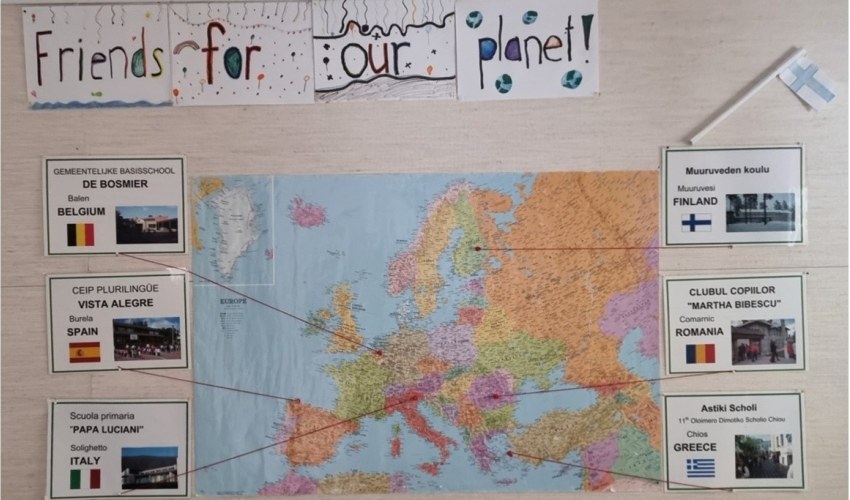 Friends for our planet!
GEMEENTELIJKE BASISSCHOOL
DE BOSMIER
Balen
BELGIUM
CEIP PLURILINGÜE
VISTA ALEGRE
Burela
SPAIN
Scuola primaria
"PAPA LUCIANI"
Solighetto
ITALY
EUROPE
Muuruveden koulu
Muuruvesi
FINLAND
CLUBUL COPIILOR
"MARTHA BIBESCU"
Comarnic
ROMANIA
Astiki Scholi
11th Oloimero Dimotiko Scholio Chiou
Chios
GREECE